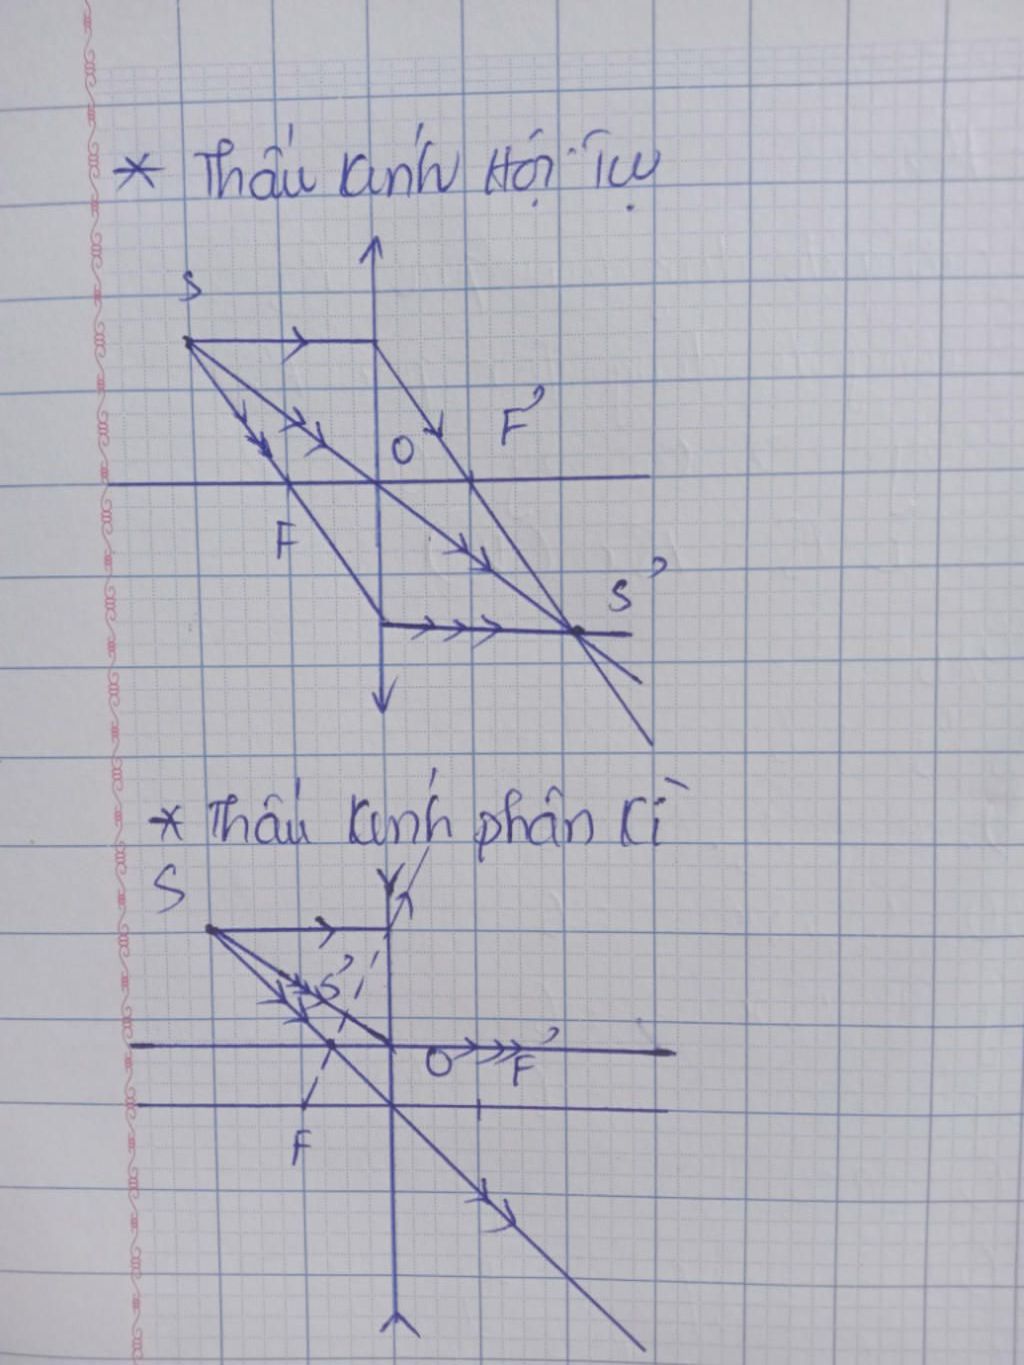 * Thấu kính Hội Tụ
S
O F'
F
S'
* Thấu kính phân kì
S
S'
O F'
F